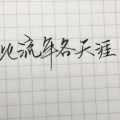 比流年各天涯